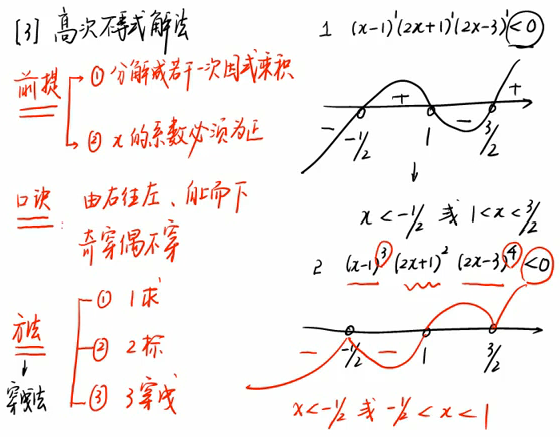 [3] 高次不等式解法
前提
① 分解成若干一次因式乘积
② x的系数必须为正
口诀: 由右往左、自上而下
奇穿偶不穿
方法
↓
穿线法
① 1求
② 2标
③ 3穿线
1 (x-1)¹(2x+1)¹(2x-3)¹<0
− + − +
-1/2 1 3/2
↓
x<-1/2 或 1<x<3/2
2 (x-1)³(2x+1)²(2x-3)⁴<0
− −
-1/2 1 3/2
x<-1/2 或 -1/2<x<1